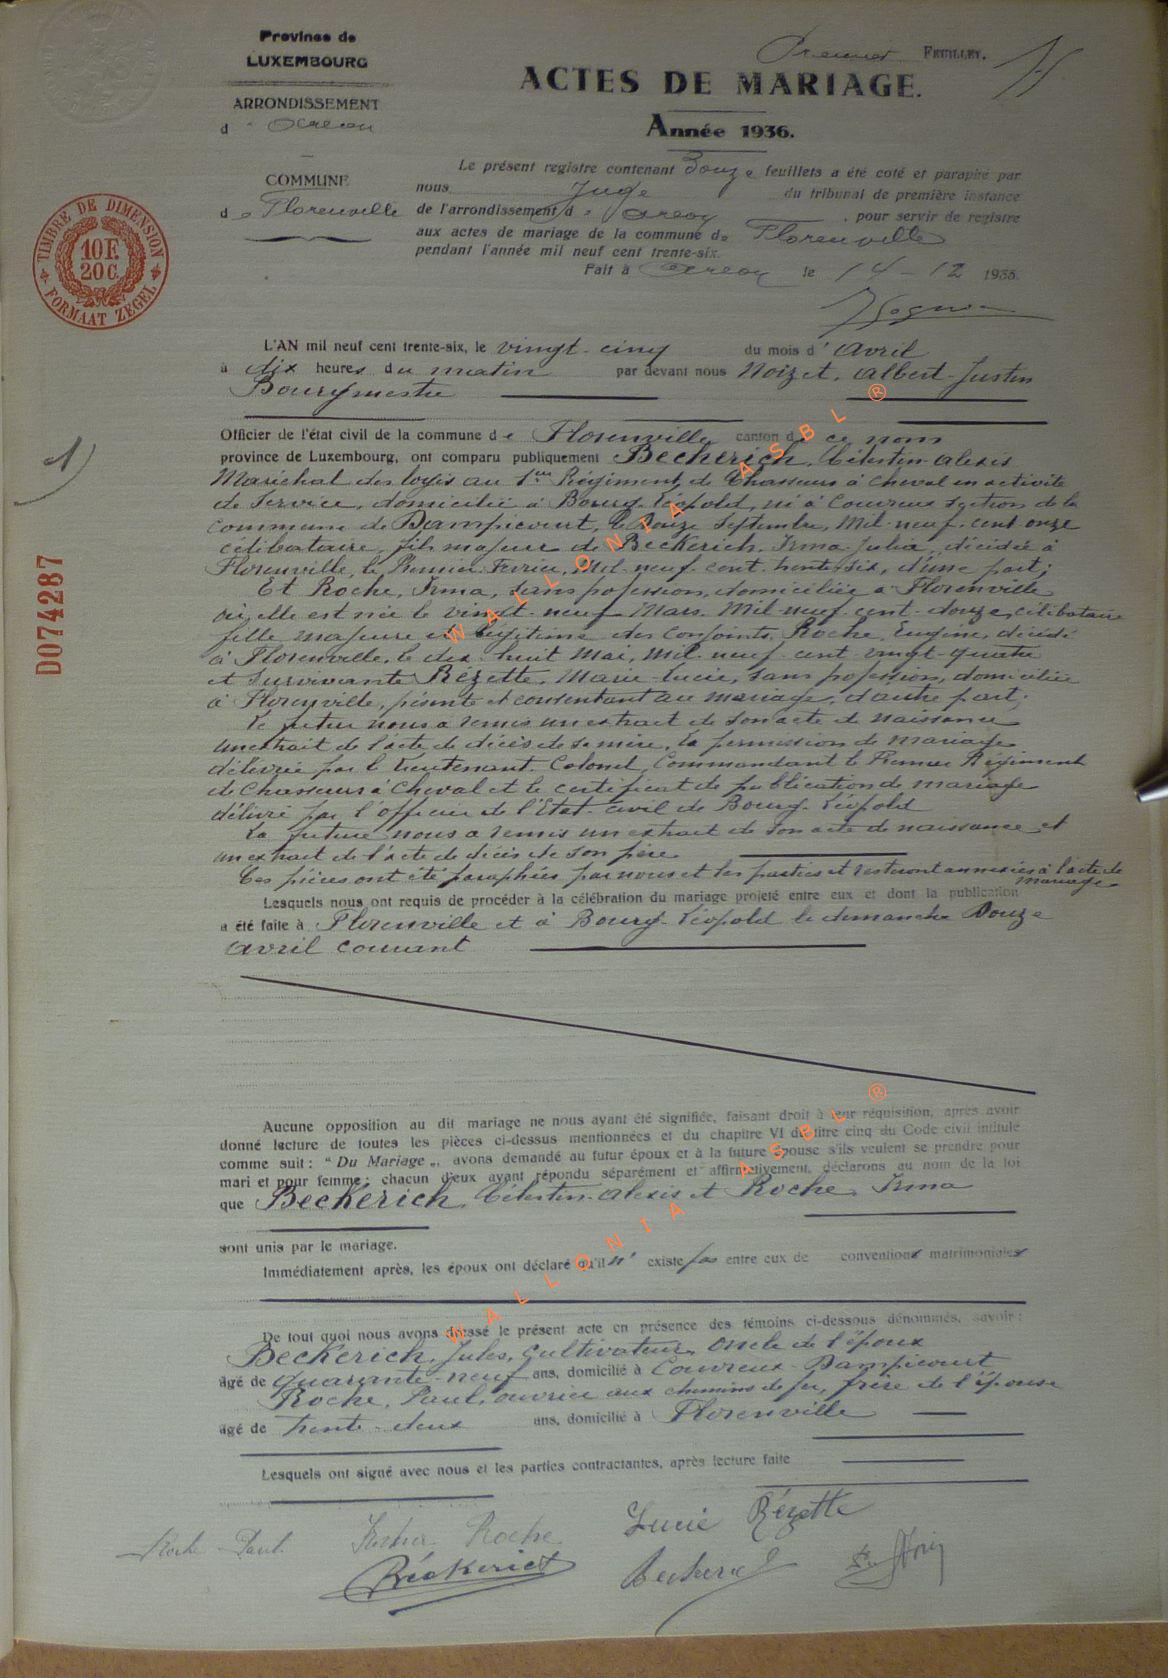 Province de
LUXEMBOURG
ARRONDISSEMENT
d
COMMUNE
de Florenville
TIMBRE DE DIMENSION
10 F.
20 C.
FORMAAT ZEGEL
D074287
1)
Premier FEUILLET.
ACTES DE MARIAGE.
Année 1936.
Le présent registre contenant Douze feuillets a été coté et paraphé par
nous Juge du tribunal de première instance
de l'arrondissement d' Arlon, pour servir de registre
aux actes de mariage de la commune de Florenville
pendant l'année mil neuf cent trente-six.
Fait à Arlon le 14-12 1935.
L'AN mil neuf cent trente-six, le vingt-cinq du mois d' Avril
à dix heures du matin par devant nous Noizet, Albert-Justin
Bourgmestre
Officier de l'état civil de la commune de Florenville canton de ce nom
province de Luxembourg, ont comparu publiquement Beckerich, Célestin-Alexis
Maréchal des logis au 1er Régiment de Chasseurs à Cheval en activité
de Service, domicilié à Bourg-Léopold, né à Couvreux section de la
commune de Dampicourt, le Douze Septembre, Mil-neuf-cent onze
célibataire, fils majeur de Beckerich, Irma-Julia, décédée à
Florenville, le Premier Février, Mil-neuf-cent-trente-six, d'une part;
Et Roche, Irma, sans profession, domiciliée à Florenville
où elle est née le vingt-neuf Mars, Mil-neuf-cent-douze, célibataire
fille majeure et légitime des conjoints, Roche, Eugène, décédé
à Florenville, le dix-huit Mai, Mil-neuf-cent-vingt-quatre
et Survivante Rézette, Marie-Lucie, sans profession, domiciliée
à Florenville, présente et consentant au mariage, d'autre part;
Le futur nous a remis un extrait de son acte de naissance
un extrait de l'acte de décès de sa mère, la permission de mariage
délivrée par le Lieutenant-Colonel, Commandant le Premier Régiment
de Chasseurs à Cheval et le certificat de publication de mariage
délivré par l'officier de l'Etat-civil de Bourg-Léopold
La future nous a remis un extrait de son acte de naissance et
un extrait de l'acte de décès de son père
Ces pièces ont été paraphées par nous et les parties et resteront annexées à l'acte de
mariage
Lesquels nous ont requis de procéder à la célébration du mariage projeté entre eux et dont la publication
a été faite à Florenville et à Bourg-Léopold le dimanche Douze
Avril courant
Aucune opposition au dit mariage ne nous ayant été signifiée, faisant droit à leur réquisition, après avoir
donné lecture de toutes les pièces ci-dessus mentionnées et du chapitre VI du titre cinq du Code civil intitulé
comme suit : “ Du Mariage „, avons demandé au futur époux et à la future épouse s'ils veulent se prendre pour
mari et pour femme; chacun d'eux ayant répondu séparément et affirmativement, déclarons au nom de la loi
que Beckerich, Célestin-Alexis et Roche, Irma
sont unis par le mariage.
Immédiatement après, les époux ont déclaré qu'il n' existe pas entre eux de conventions matrimoniales
De tout quoi nous avons dressé le présent acte en présence des témoins ci-dessous dénommés, savoir :
Beckerich, Jules, Cultivateur, oncle de l'époux
âgé de quarante-neuf ans, domicilié à Couvreux-Dampicourt
Roche, Paul, ouvrier aux chemins de fer, frère de l'épouse
âgé de trente-deux ans, domicilié à Florenville
Lesquels ont signé avec nous et les parties contractantes, après lecture faite
Roche Paul Irma Roche Lucie Rézette
Beckerich Beckerich
WALLONIA ASBL ®
WALLONIA ASBL ®